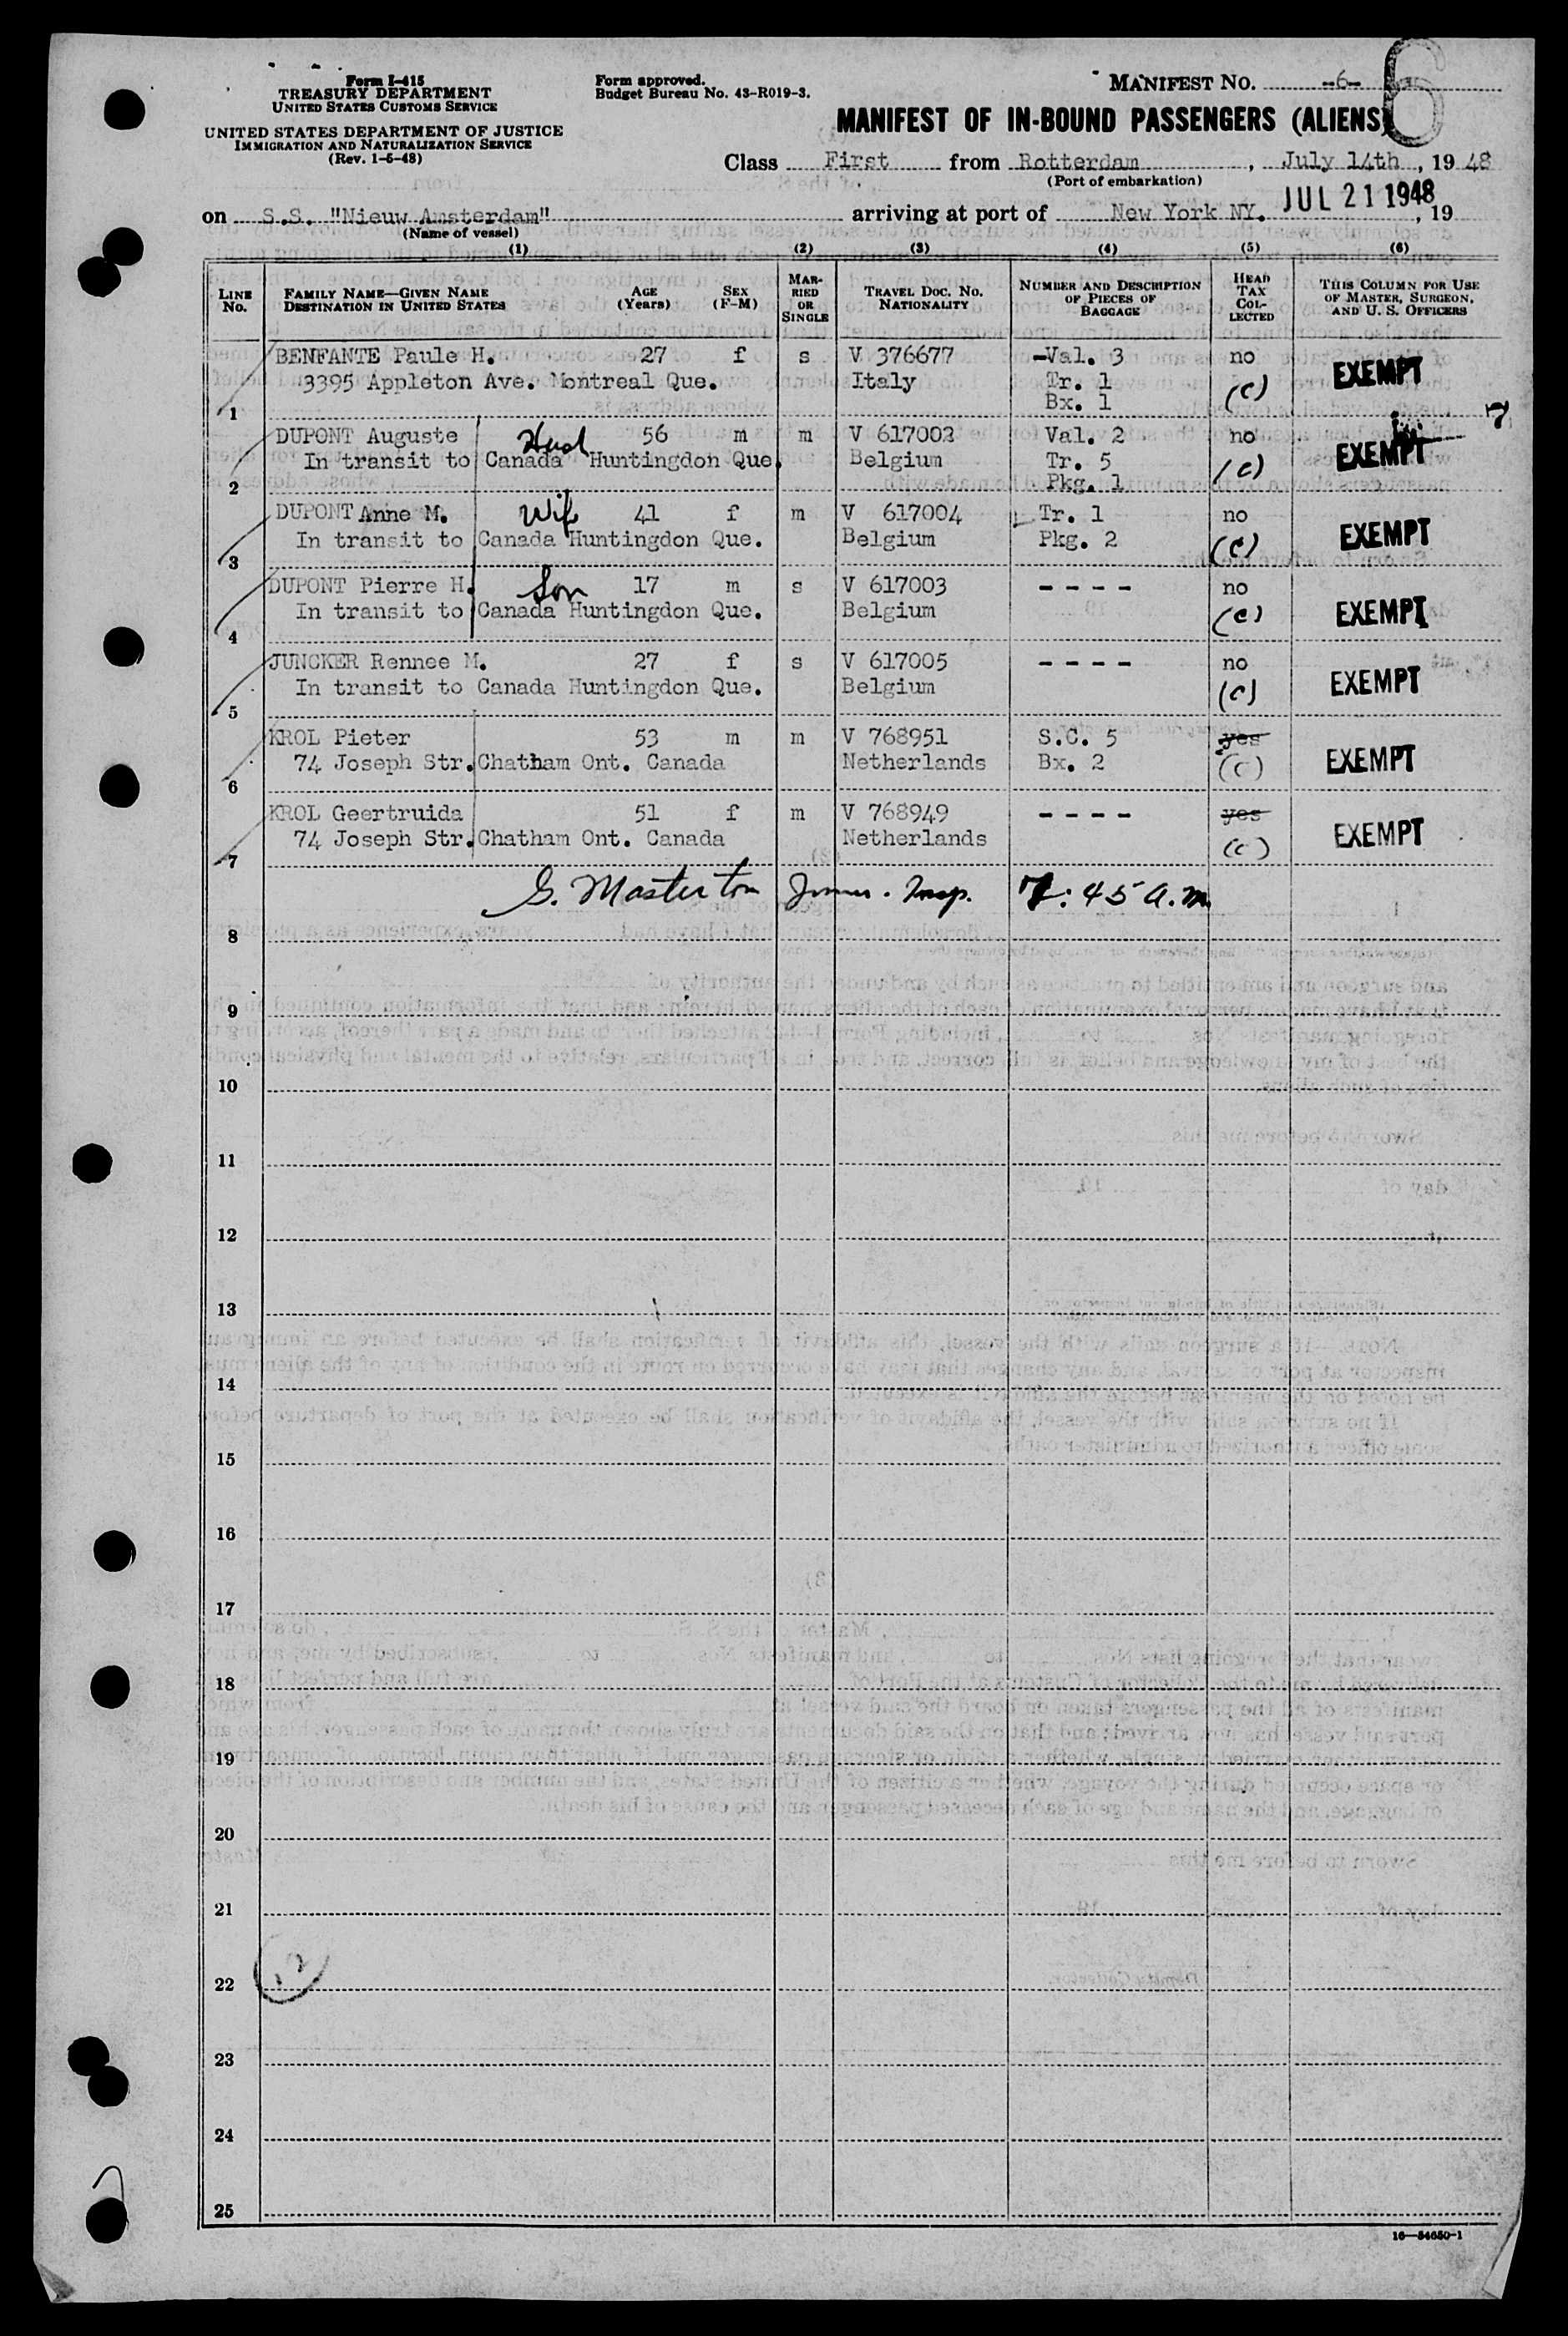 Form I-415
TREASURY DEPARTMENT
UNITED STATES CUSTOMS SERVICE
UNITED STATES DEPARTMENT OF JUSTICE
IMMIGRATION AND NATURALIZATION SERVICE
(Rev. 1-6-48)
Form approved.
Budget Bureau No. 43-R019-3.
MANIFEST NO. -6- 6
MANIFEST OF IN-BOUND PASSENGERS (ALIENS)
Class First from Rotterdam, July 14th, 19 48
(Port of embarkation)
on S.S. "Nieuw Amsterdam" arriving at port of New York NY. JUL 21 1948, 19
(Name of vessel)
(1) (2) (3) (4) (5) (6)
LINE No. FAMILY NAME—GIVEN NAME DESTINATION IN UNITED STATES AGE (Years) SEX (F-M) MARRIED OR SINGLE TRAVEL DOC. NO. NATIONALITY NUMBER AND DESCRIPTION OF PIECES OF BAGGAGE HEAD TAX COLLECTED THIS COLUMN FOR USE OF MASTER, SURGEON, AND U. S. OFFICERS
BENFANTE Paule H. 27 f s V 376677 -Val. 3 no EXEMPT
3395 Appleton Ave. Montreal Que. Italy Tr. 1 (C)
1 Bx. 1
7
DUPONT Auguste Husd 56 m m V 617002 Val. 2 no EXEMPT
In transit to Canada Huntingdon Que. Belgium Tr. 5 (C)
2 Pkg. 1
DUPONT Anne M. Wife 41 f m V 617004 Tr. 1 no EXEMPT
In transit to Canada Huntingdon Que. Belgium Pkg. 2 (C)
3
DUPONT Pierre H. Son 17 m s V 617003 - - - - no EXEMPT
In transit to Canada Huntingdon Que. Belgium (C)
4
JUNCKER Rennee M. 27 f s V 617005 - - - - no EXEMPT
In transit to Canada Huntingdon Que. Belgium (C)
5
KROL Pieter 53 m m V 768951 S.C. 5 yes EXEMPT
74 Joseph Str. Chatham Ont. Canada Netherlands Bx. 2 (C)
6
KROL Geertruida 51 f m V 768949 - - - - yes EXEMPT
74 Joseph Str. Chatham Ont. Canada Netherlands (C)
7
G. Masterton Immr. Insp. 7:45 a.m.
8
9
10
11
12
13
14
15
16
17
18
19
20
21
22
23
24
25
16—54650-1